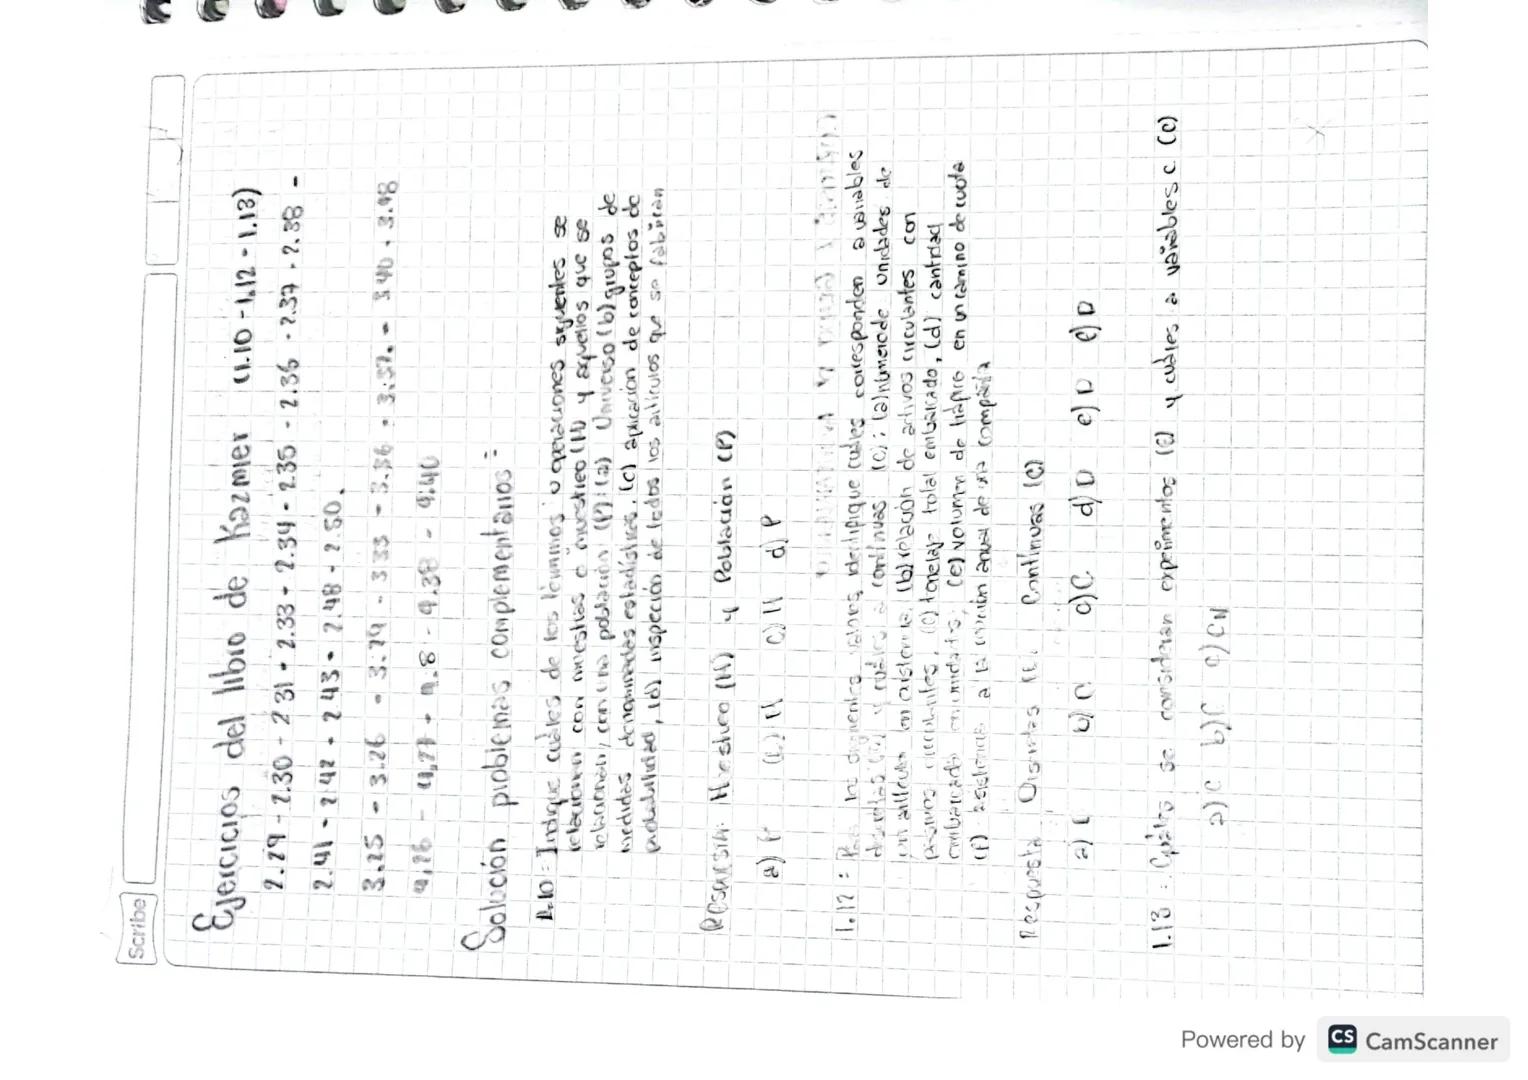 Scribe
Ejercicios del libro de Kazmier (1.10 - 1.12 - 1.13)
2.29 - 2.30 - 2.31 - 2.33 - 2.34 - 2.35 - 2.36 - 2.37 - 2.38 -
2.41 - 2.42 - 2.43 - 2.48 - 2.50.
3.25 - 3.26 - 3.29 - 3.33 - 3.36 - 3.37 - 3.40 - 3.48
4.26 - 4.27 - 4.8 - 4.38 - 4.40
Solución problemas complementarios:
1.10: Indique cuáles de los términos u operaciones siguientes se
relacionan con muestras o muestreo (M) y aquellos que se
relacionan con una población (P): (a) Universo (b) grupos de
medidas denominadas estadísticas, (c) aplicación de conceptos de
probabilidad, (d) inspección de todos los artículos que se fabrican
Respuesta: Muestreo (M) y Población (P)
a) P (b) M c) M d) P
1.12: Para los siguientes valores, identifique cuáles corresponden a variables
discretas y cuáles a continuas (C): (a) número de unidades de
un artículo en existencia, (b) relación de activos circulantes con
pasivos (c) tonelaje total embarcado, (d) cantidad
embarcado en unidades, (e) volumen de tráfico en un camino de cuota
(f) asistencia a la reunión anual de una compañía
Respuesta Discretas Continuas (C)
a) b) C c) C d) D e) D e) D
1.13: Cuáles se consideran experimentos (E) y cuáles a variables c (c)
a) C b) C c) CN
Powered by CS CamScanner